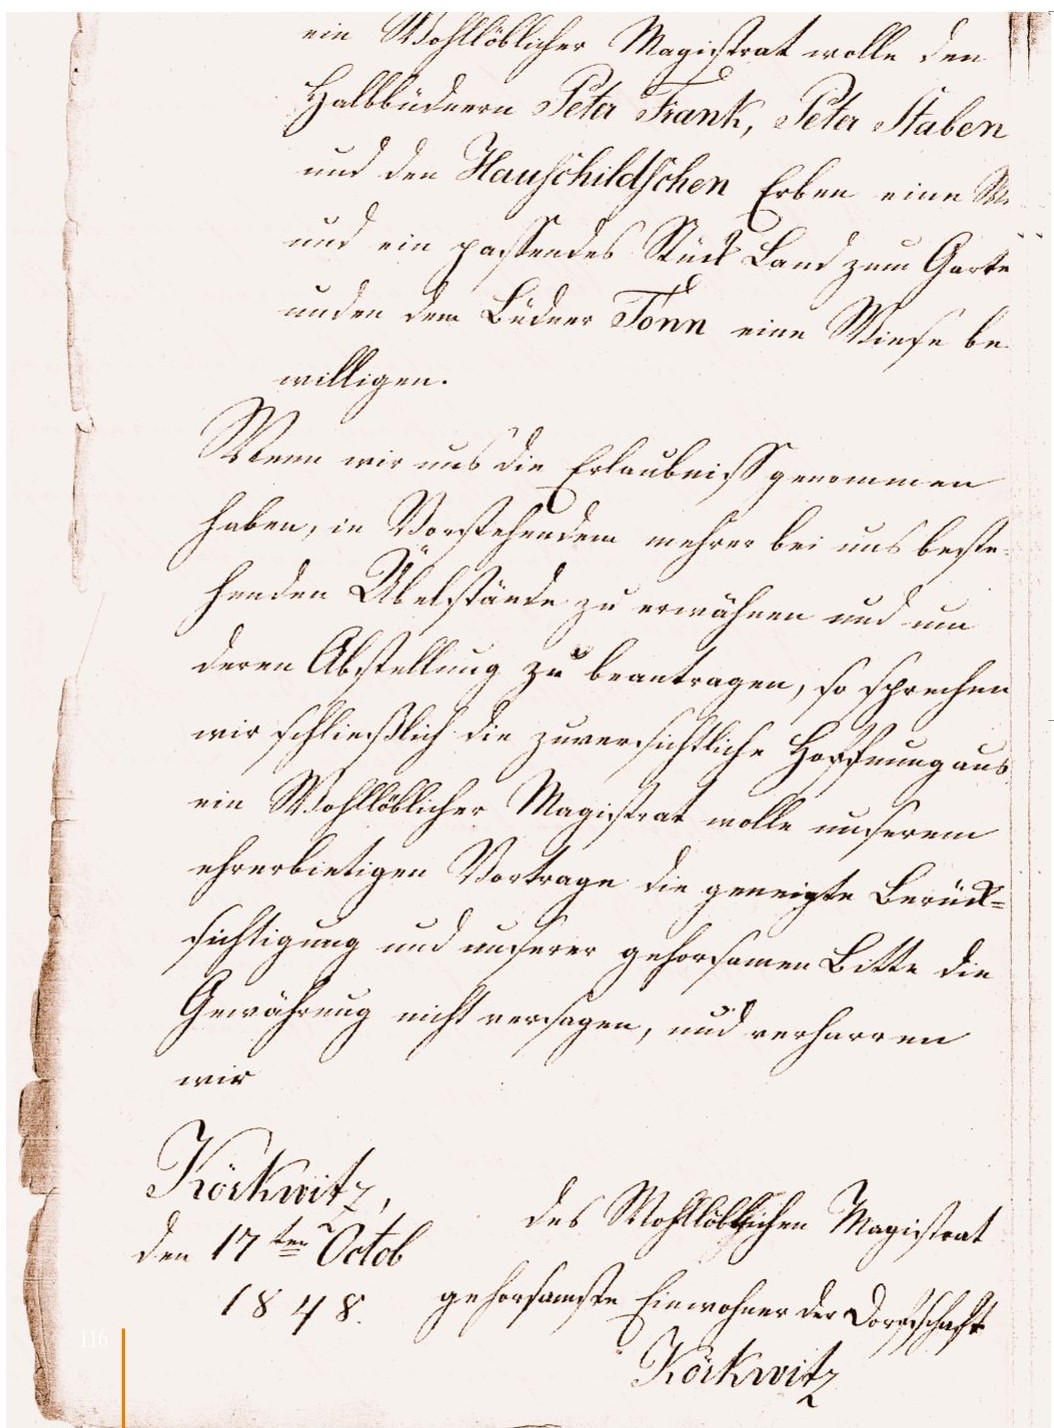 ein Wohllöblicher Magistrat wolle den
Halbbüdnern Peter Frank, Peter Staben
und den Hauschildschen Erben eine W
und ein passendes Stück Land zum Garte
und dem Büdner Tonn eine Wiese be
willigen.
Wenn wir uns die Erlaubniss genommen
haben, in Vorstehendem mehrer bei uns beste-
henden Übelstände zu erwähnen und um
deren Abstellung zu beantragen, so sprechen
wir schließlich die zuversichtliche Hoffnung aus
ein Wohllöblicher Magistrat wolle unserem
ehrerbietigen Vortrage die geneigte Berück=
sichtigung und unserer gehorsamen Bitte die
Gewährung nicht versagen, und verharren
wir
Körkwitz,
den 17ten Octob
1848.
des Wohllöblichen Magistrat
gehorsamste Einwohner der Dorfschaft
Körkwitz
116